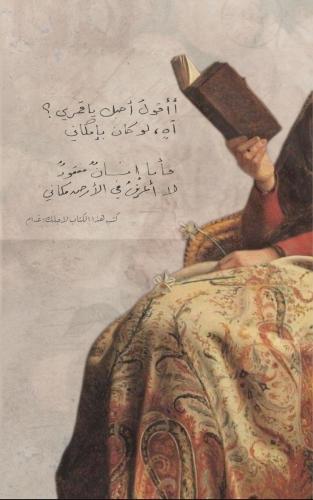 أأقولُ أحبك ياقمري ؟
آهٍ ، لو كان بإمكاني
فأنا إنسانٌ مفقودٌ
لا أعرفُ في الأرض مكاني
كتب هذا الكتاب لاجلك : غدام